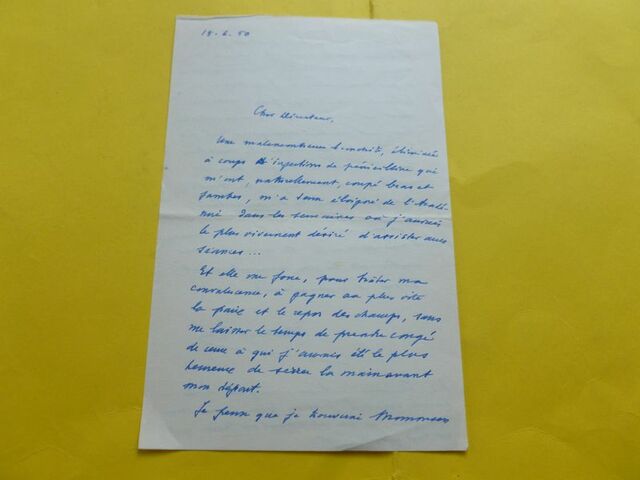 18.6.50
Cher Directeur,
Une malencontreuse
à coups d'injections de pénicilline qui
m'ont, naturellement, coupé bras et
jambes, m'a tenu éloigné de l'Acadé
mie dans les semaines où j'aurais
le plus vivement désiré d'assister aux
séances...
Et elle me force, pour hâter ma
convalescence, à gagner au plus vite
la paix et le repos des champs, sans
me laisser le temps de prendre congé
de ceux à qui j'aurais été le plus
heureux de serrer la main avant
mon départ.
Je pense que je trouverai